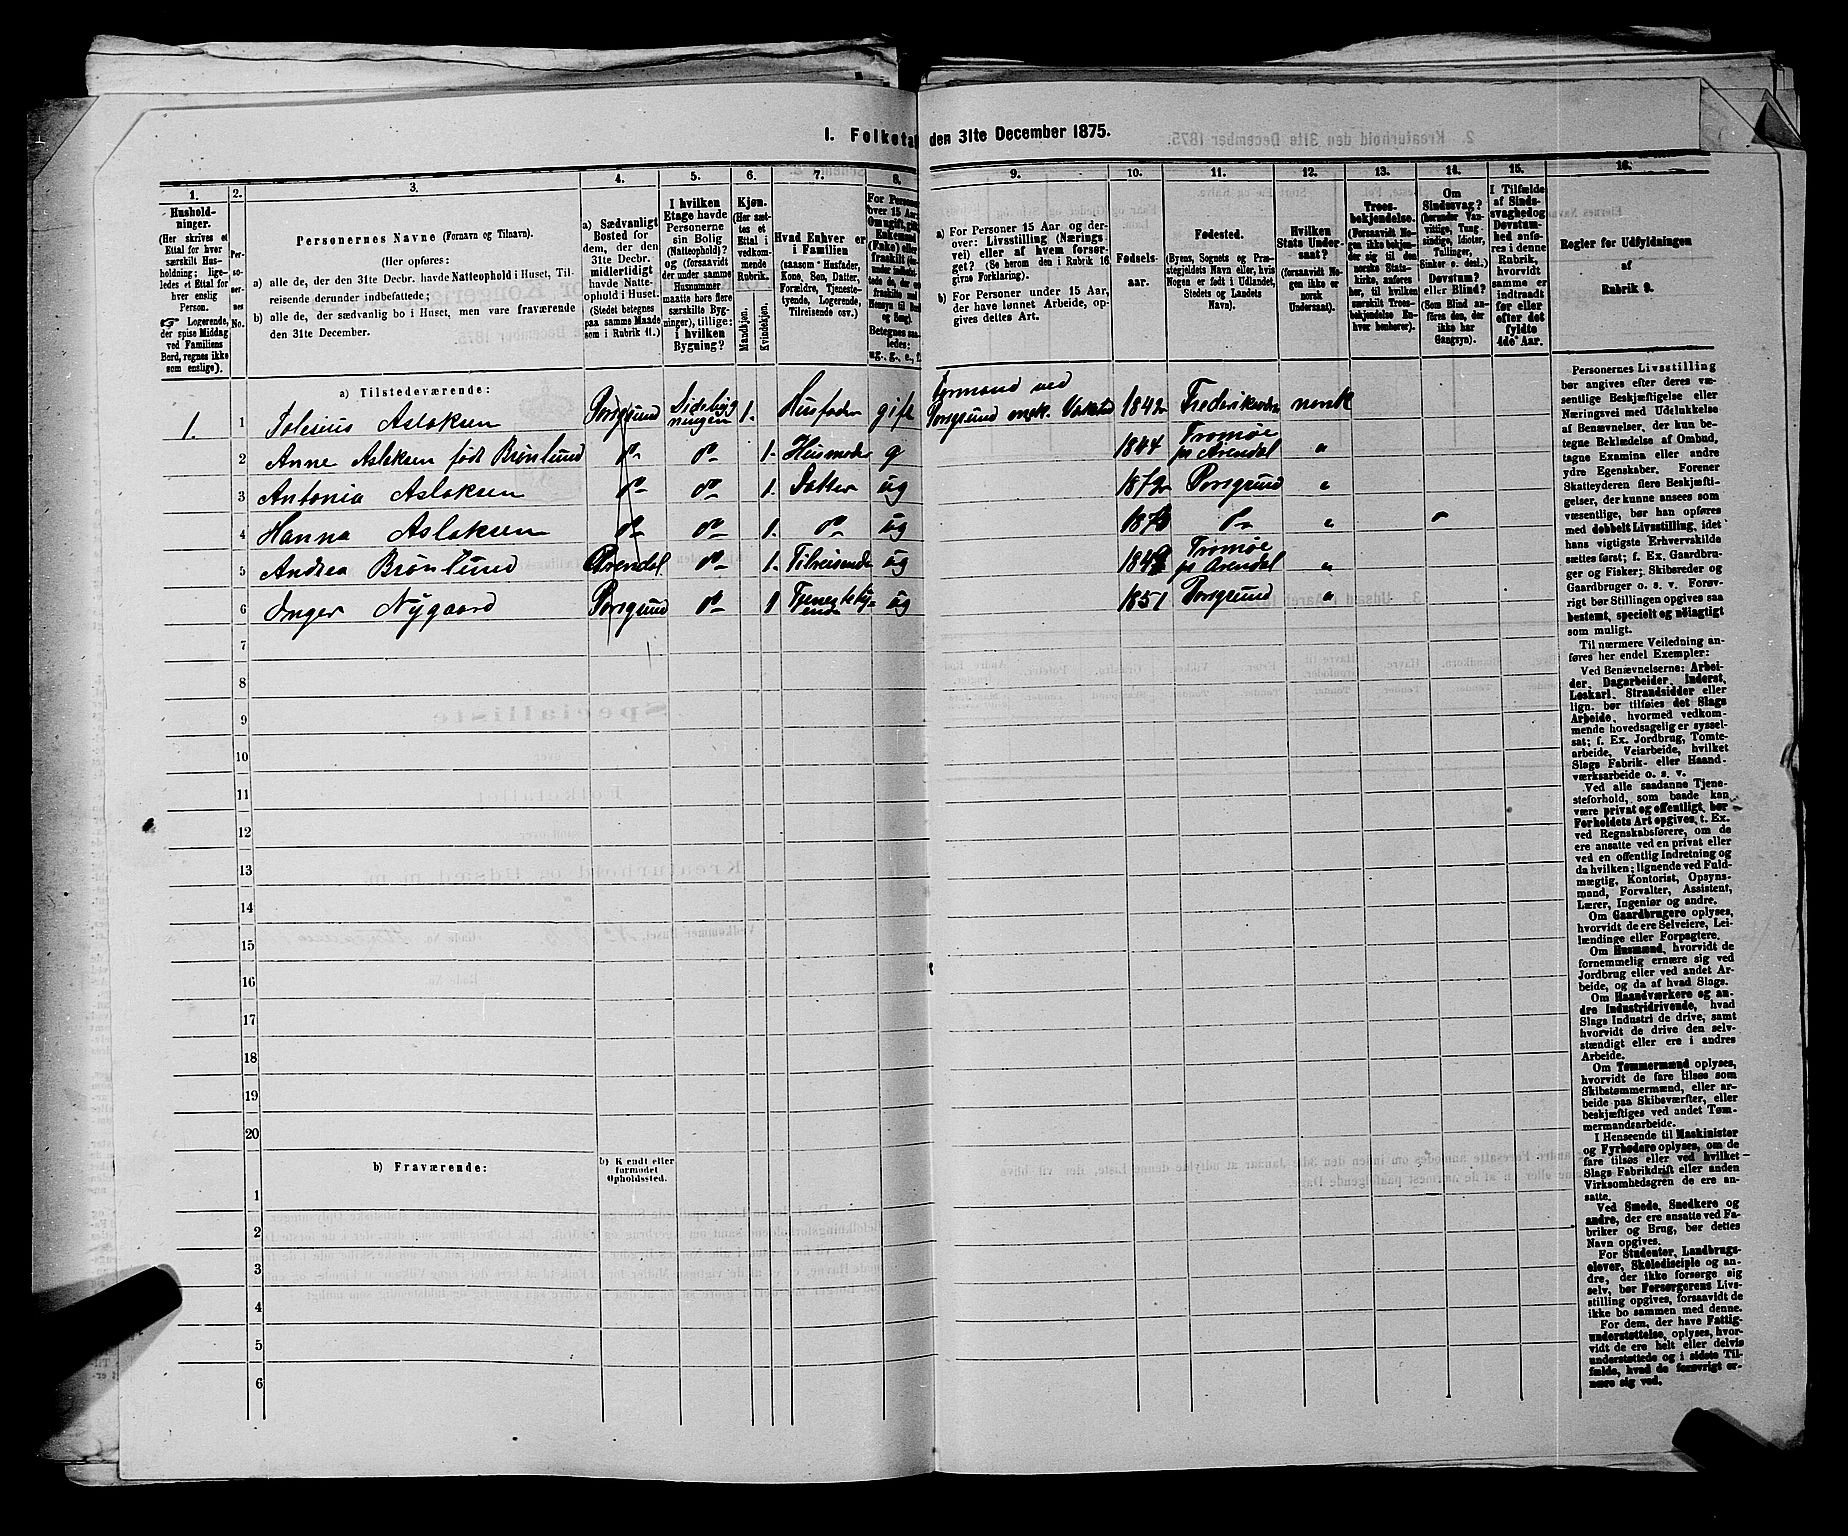 I. Folketal den 31te December 1875.
1.
Hushold-
ninger.
(Her skrives et
Ettal for hver
særskilt Hus-
holdning; lige-
ledes et Ettal
for hver enslig
Person.
☞ Logerende,
der spise Middag
ved Familiens
Bord, regnes ikke
som enslige).
2.
Per-
so-
ner-
nes
No.
3.
Personernes Navne (Fornavn og Tilnavn).
(Her opføres:
a) alle de, der den 31te Decbr. havde Natteophold i Huset, Til-
reisende derunder indbefattede;
b) alle de, der sædvanlig bo i Huset, men vare fraværende
den 31te December.
4.
a) Sædvanligt
Bosted for
dem, der den
31te Decbr.
midlertidigt
havde Natte-
ophold i Huset.
(Stedet betegnes
paa samme Maade
som i Rubrik 11.)
5.
I hvilken
Etage havde
Personerne
sin Bolig
(Natteophold)?
og (forsaavidt
der under samme
Husnummer
maatte høre flere
særskilte Byg-
ninger), tillige:
i hvilken
Bygning?
6.
Kjøn.
(Her sæt-
tes et
Ettal i
vedkom-
mende
Rubrik.
Mandkjøn.
Kvindekjøn.
7.
Hvad Enhver er
i Familien
(saasom Husfader,
Kone, Søn, Datter,
Forældre, Tjeneste-
tyende, Logerende,
Tilreisende osv.)
8.
ug., g., e., f.
9.
a) For Personer 15 Aar og der-
over: Livsstilling (Nærings-
vei) eller af hvem forsør-
get? (Se herom den i Rubrik 16
givne Forklaring).
b) For Personer under 15 Aar,
der have lønnet Arbeide, op-
gives dettes Art.
10.
Fødsels-
aar.
11.
Fødested.
(Byens, Sognets og Præ-
stegjeldets Navn eller, hvis
Nogen er født i Udlandet,
Stedets og Landets
Navn).
12.
Hvilken
Stats Under-
saat?
(forsaavidt No-
gen ikke er
norsk
Undersaat).
13.
Troes-
bekjendelse.
(Forsaavidt No-
gen ikke bekjen-
der sig til den
norske Stats-
kirke, anføres
her, til hvilken
særskilt Troes-
bekjendelse En-
hver henhører).
14.
Om
Sindssvag?
(herunder Van-
vittige, Tung-
sindige, Idioter,
Tullinger,
Sinker o. desl.)
Døvstum?
eller Blind?
(Som Blind an-
føres den, der
ikke har
Gangsyn).
15.
I Tilfælde
af Sinds-
svaghed og
Døvstum-
hed anfø-
res i denne
Rubrik,
hvorvidt
samme er
indtraadt
før eller
efter det
fyldte
4de Aar.
16.
Regler for Udfyldningen
af
Rubrik 9.
a) Tilstedeværende:
1. 1 Aslaksen Porsgrund Sidebyg
ningen 1. Husfader gift Formand ved
Porsgrund mek. 1842 norsk
2 Anne Aslaksen født Brønlund do do 1. Husmoder g 1844 Tromøe
ps Arendal "
3 Antonia Aslaksen do do 1. Datter ug 1872 Porsgrund "
4 Hanna Aslaksen do do 1. do ug do "
5 Andrea Brønlund Arendal do 1. Tilreisende ug Tromøe
ps Arendal "
6 Inger Nygaard Porsgrund do 1 Tjenestety-
ende ug 1851 Porsgrund "
7
8
9
10
11
12
13
14
15
16
17
18
19
20
b) Fraværende:
b) Kjendt eller
formodet
Opholdssted.
1
2
3
4
5
6
Personernes Livsstilling
bør angives efter deres væ-
sentlige Beskjæftigelse eller
Næringsvei med Udelukkelse
af Benævnelser, der kun be-
tegne Beklædelse af Ombud,
tagne Examina eller andre
ydre Egenskaber. Forener
Skatteyderen flere Beskjæfti-
gelser, der kunne ansees som
væsentlige, bør han opføres
med dobbelt Livsstilling, idet
hans vigtigste Erhvervskilde
sættes først; f. Ex. Gaardbru-
ger og Fisker; Skibsreder og
Gaardbruger o. s. v. Forøv-
rigt bør Stillingen opgives saa
bestemt, specielt og nøiagtigt
som muligt.
Til nærmere Veiledning an-
føres her endel Exempler:
Ved Benævnelserne: Arbei-
der, Dagarbeider, Inderst,
Løskarl, Strandsidder eller
lign. bør tilføies det Slags
Arbeide, hvormed vedkom-
mende hovedsagelig er syssel-
sat; f. Ex. Jordbrug, Tomte-
arbeide, Veiarbeide, hvilket
Slags Fabrik- eller Haand-
værksarbeide o. s. v.
Ved alle saadanne Tjene-
steforhold, som baade kan
være privat og offentligt, bør
Forholdets Art opgives, t. Ex.
ved Regnskabsførere, om de
ere ansatte ved en privat eller
ved en offentlig Indretning og
da hvilken; lignende ved Fuld-
mægtig, Kontorist, Opsyns-
mand, Forvalter, Assistent,
Lærer, Ingeniør og andre.
Om Gaardbrugere oplyses,
hvorvidt de ere Selveiere, Lei-
lændinge eller Forpagtere.
Om Husmænd, hvorvidt de
fornemmelig ernære sig ved
Jordbrug eller ved andet Ar-
beide, og da af hvad Slags.
Om Haandværkere og an-
dre Industridrivende, hvad
Slags Industri de drive, samt
hvorvidt de drive den selv-
stændigt eller ere i andres
Arbeide.
Om Tømmermænd oplyses,
hvorvidt de fare tilsøs som
Skibstømmermænd, eller ar-
beide paa Skibsværfter, eller
beskjæftiges ved andet Tøm-
mermandsarbeide.
I Henseende til Maskinister
og Fyrbødere oplyses, om de
fare tilsøs eller ved hvilket
Slags Fabrikdrift eller anden
Virksomhedsgren de ere an-
satte.
Ved Smede, Snedkere og
andre, der ere ansatte ved Fa-
briker og Brug, bør dettes
Navn opgives.
For Studenter, Landbrugs-
elever, Skoledisciple og an-
dre, der ikke forsørge sig
selv, bør Forsørgerens Livs-
stilling opgives, forsaavidt de
ikke bo sammen med denne.
For dem, der have Fattig-
understøttelse, oplyses, hvor-
vidt de ere helt eller delvis
understøttede og i sidste Til-
fælde, hvad de forøvrigt er-
nære sig ved.